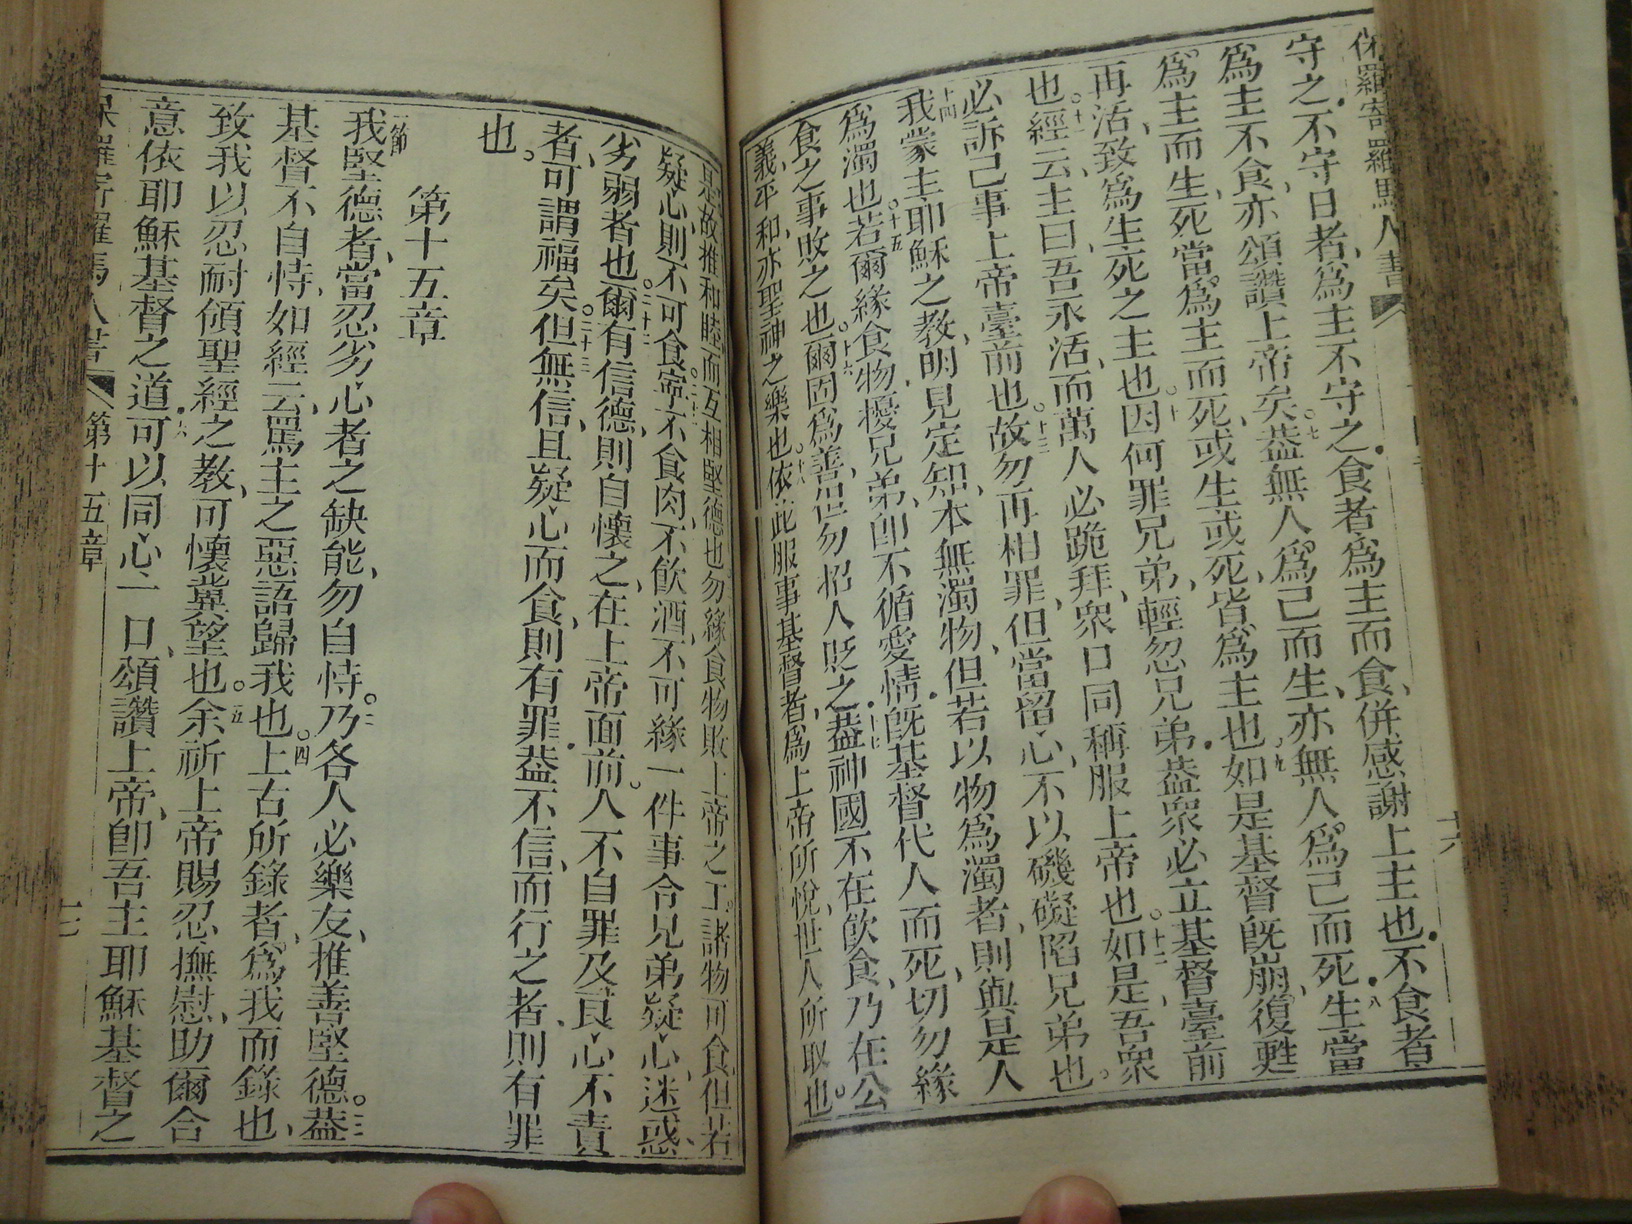 保羅寄羅馬人書
十六
守之、不守日者、爲主不守之、食者爲主而食、併感謝上主也、不食者
爲主不食、亦頌讚上帝矣。七蓋無人爲己而生、亦無人爲己而死、八生當
爲主而生、死當爲主而死、或生或死、皆爲主也。九如是基督旣崩、復甦
再活、致爲生死之主也。十因何罪兄弟、輕忽兄弟、蓋衆必立基督臺前
也。十一經云、主曰、吾永活、而萬人必跪拜、衆口同稱服上帝也。十二如是吾衆
必訴己事上帝臺前也。十三故勿再相罪、但當留心、不以磯礙陷兄弟也。
十四我蒙主耶穌之教、明見定知、本無濁物、但若以物爲濁者、則與是人
爲濁也。十五若爾緣食物擾兄弟、卽不循愛情、旣基督代人而死、切勿緣
食之事敗之也。十六爾固爲善、但勿招人貶之、十七蓋神國不在飲食、乃在公
義平和、亦聖神之樂也。十八依此服事基督者、爲上帝所悅、世人所取也。
是故推和睦、而互相堅德也。二十勿緣食物敗上帝之工、諸物可食、但若
疑心、則不可食、寧不食肉、不飲酒、不可緣一件事令兄弟疑心、迷惑、
劣弱者也。二十二爾有信德、則自懷之、在上帝面前。人不自罪及良心不責
者、可謂福矣。二十三但無信、且疑心而食、則有罪、蓋不信、而行之者、則有罪
也。
第十五章
一節我堅德者、當忍劣心者之缺能、勿自恃。二乃各人必樂友、推善堅德。三蓋
基督不自恃、如經云、罵主之惡語歸我也。四上古所錄者、爲我而錄也、
致我以忍耐、頌聖經之教、可懷冀望也。五余祈上帝賜忍撫慰、助爾合
意、依耶穌基督之道、六可以同心一口、頌讚上帝、卽吾主耶穌基督之
保羅寄羅馬人書
第十五章
十七